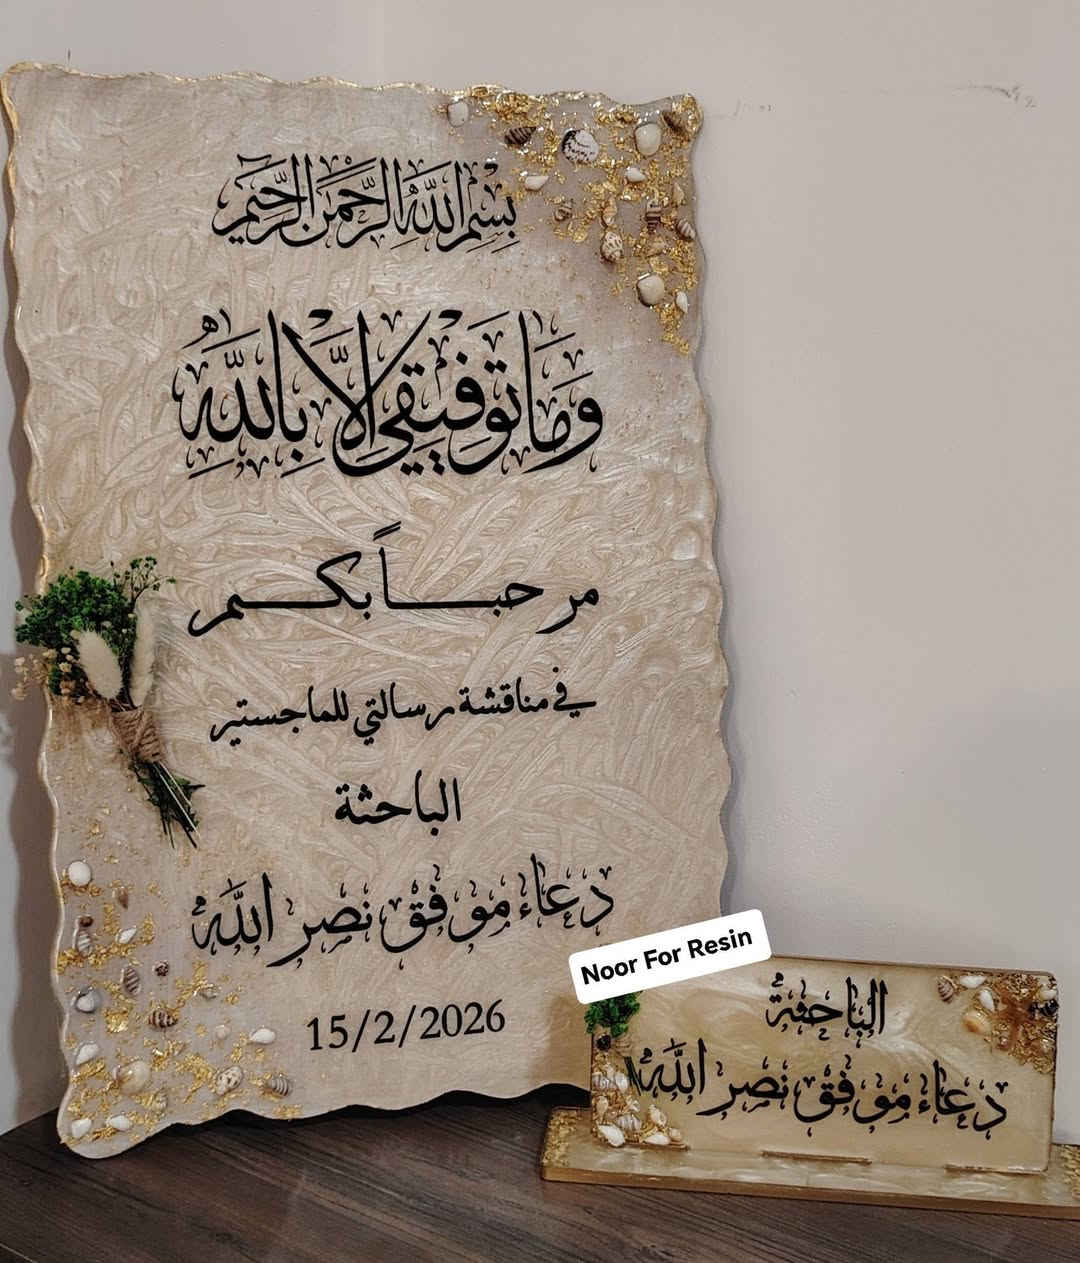 بسم الله الرحمن الرحيم
وما توفيقي إلا بالله
مرحباً بكم
في مناقشة رسالتي للماجستير
الباحثة
دعاء موفق نصر الله
15/2/2026
Noor For Resin
الباحثة
دعاء موفق نصر الله